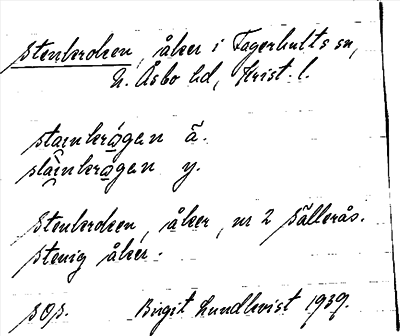 Stenkroken, åker i Fagerhults sn,
N. Åsbo hd, Krist. l.
stainkrógan ä.
stàinkrogan y.
Stenkroken, åker, nr 2 Sällerås.
stenig åker.
Birgit Lundkvist 1939.